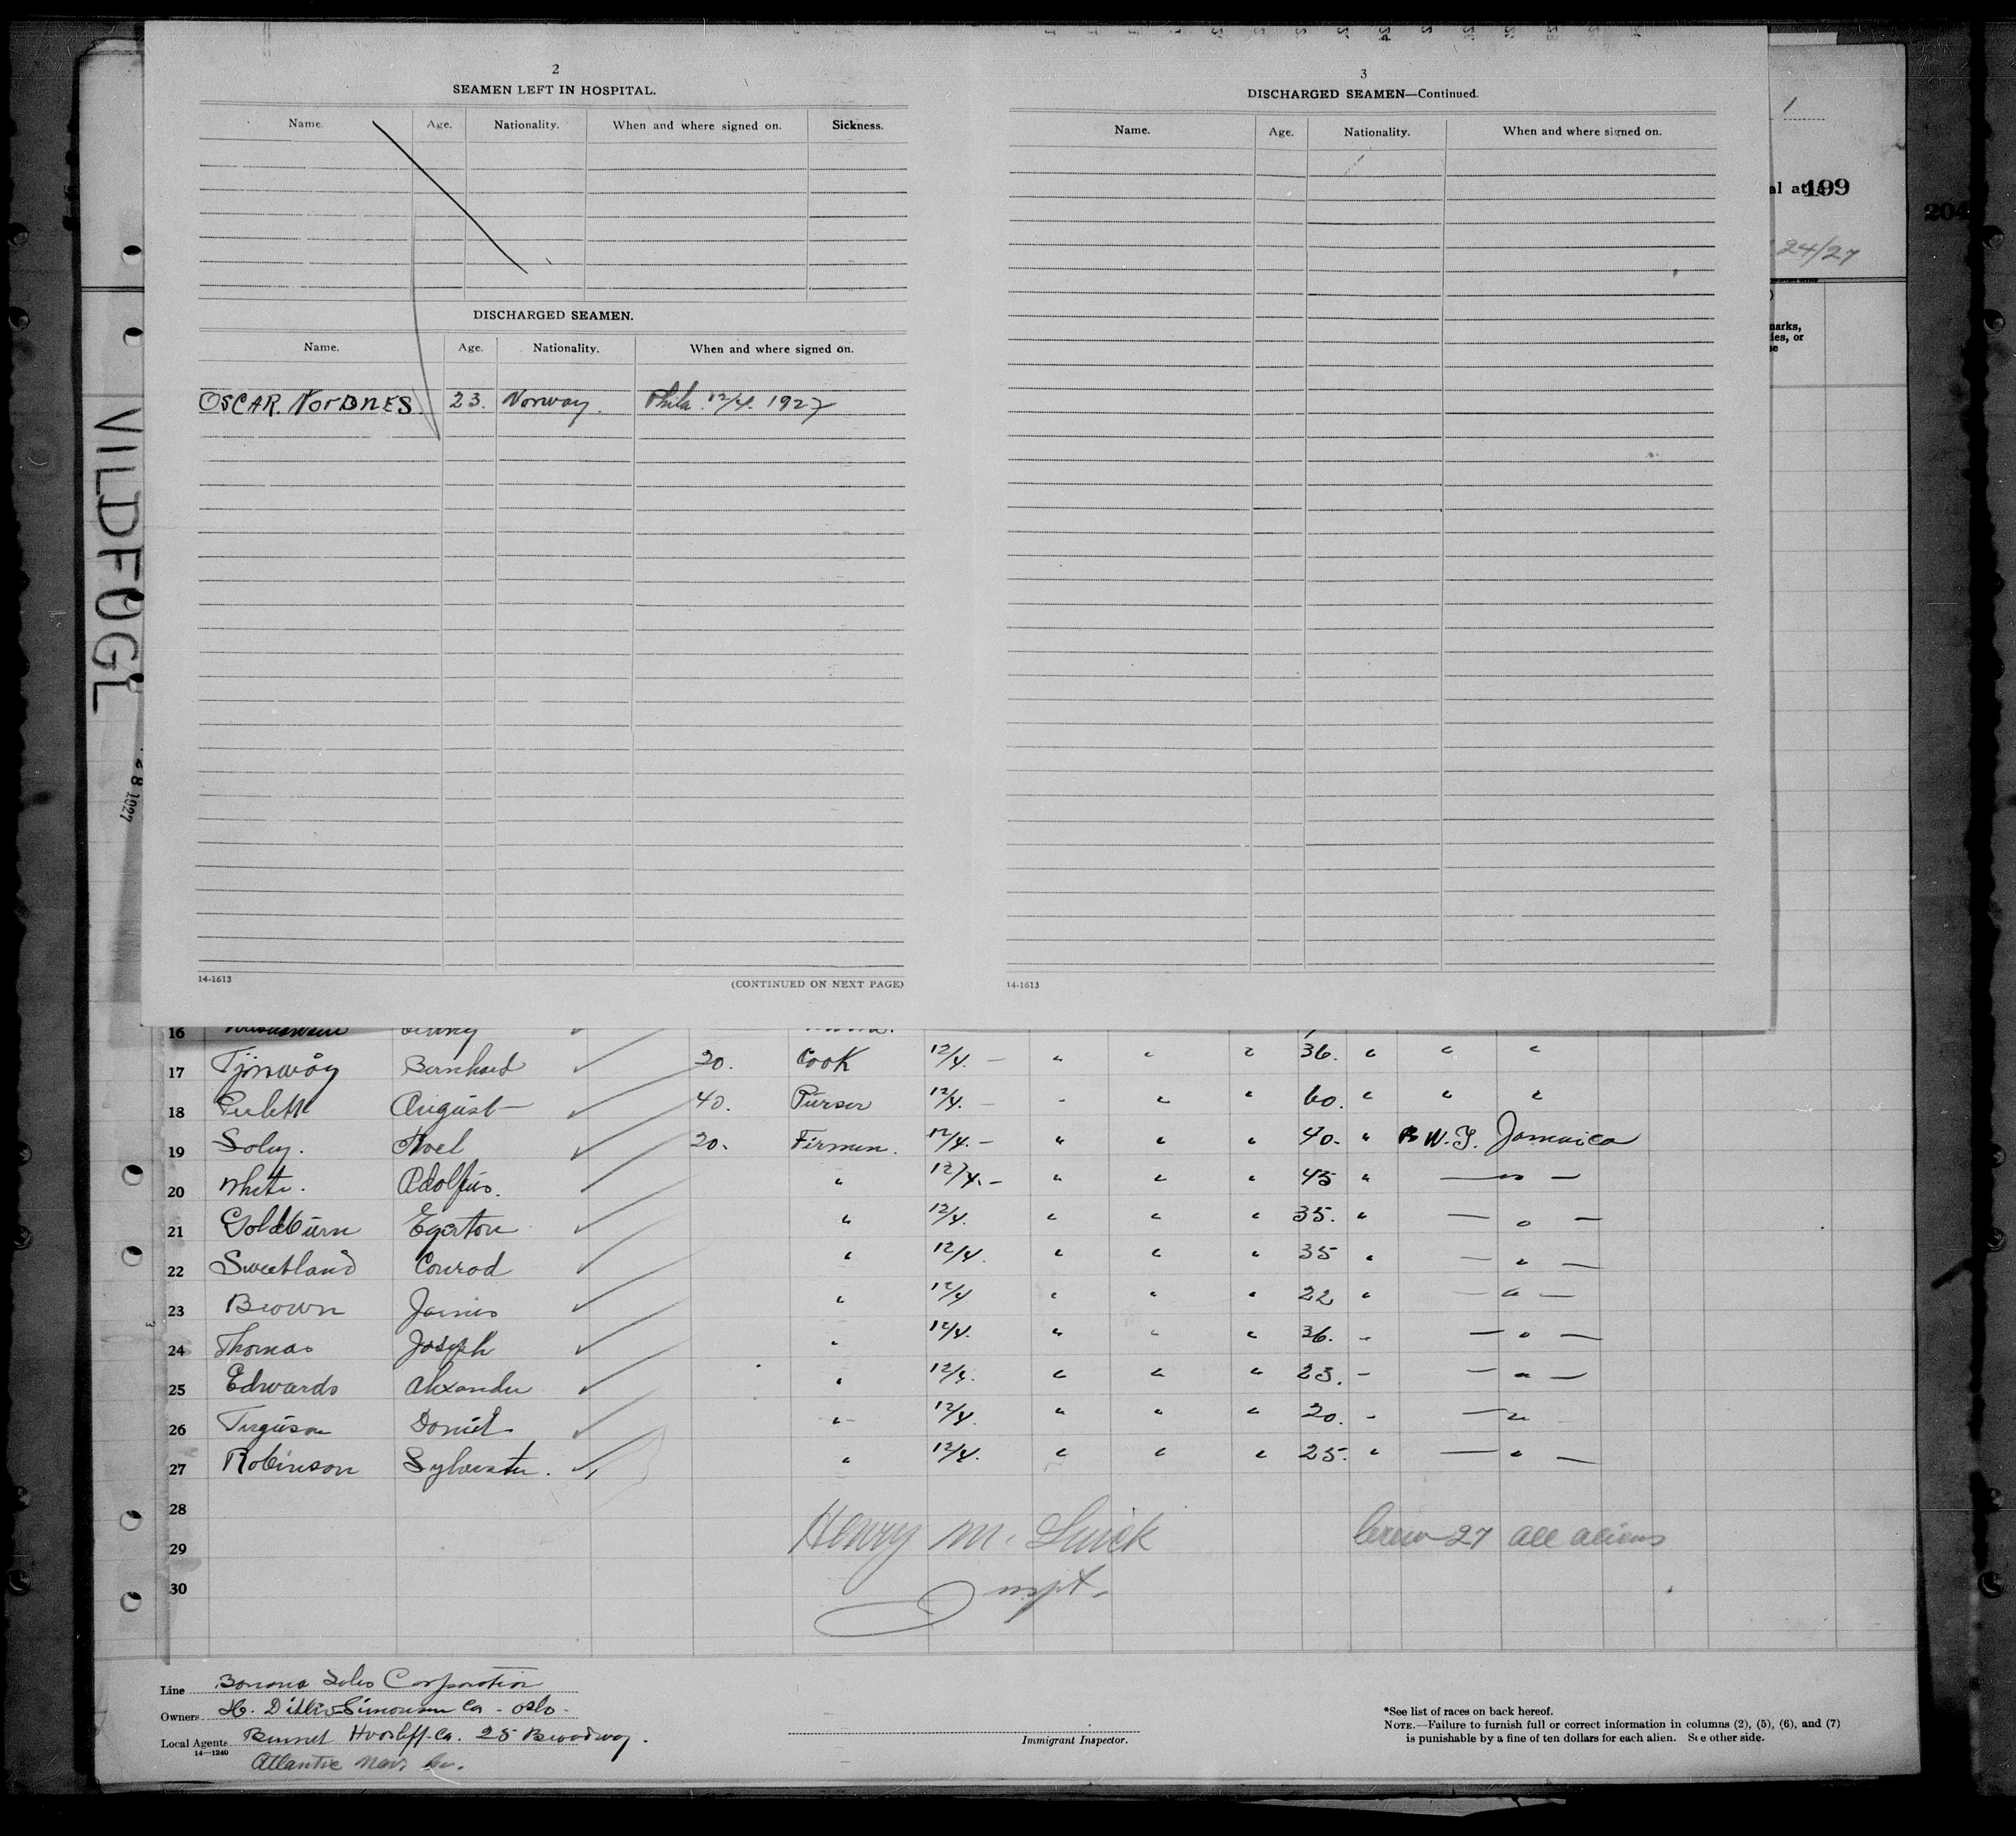 2
SEAMEN LEFT IN HOSPITAL.
Name. Age. Nationality. When and where signed on. Sickness.
DISCHARGED SEAMEN.
Name. Age. Nationality. When and where signed on.
OSCAR. NORDNES. 23. Norway. Phila. 12/4. 1927
14-1613
(CONTINUED ON NEXT PAGE)
3
DISCHARGED SEAMEN—Continued.
Name. Age. Nationality. When and where signed on.
14-1613
1
al at 199
204
24/27
marks,
VILDFUGL
28 1927
16
17 Bernhard 20. Cook 12/4. — " " " 36. " " "
18 August 40. Purser 12/4. — " " " 60. " " "
19 Soley. Noel 20. Firmen. 12/4. — " " " 40. " B W. I. Jamaica
20 White. Adolfus. " 12/4. — " " " 45 " — " —
21 Goldburn Egerton " 12/4. " " " 35. " — " —
22 Sweetland Conrad " 12/4. " " " 35 " — " —
23 Brown James " 12/4 " " " 22 " — " —
24 Thomas Joseph " 12/4. " " " 36. " — " —
25 Edwards Alexander " 12/4. " " " 23. " — " —
26 Ferguson Daniel " 12/4. " " " 20. " — "
27 Robinson Sylvester. " 12/4. " " " 25. " — " —
28
29 Henry M. Crew 27 all aliens
30 Inspt.
Line Banana Sales Corporation
Owners H. Ditlev-Simonsen Co - Oslo -
Local Agents Co. 25 Broadway.
14—1240
Atlantic Nav. Co.
Immigrant Inspector.
*See list of races on back hereof.
NOTE.—Failure to furnish full or correct information in columns (2), (5), (6), and (7)
is punishable by a fine of ten dollars for each alien. See other side.